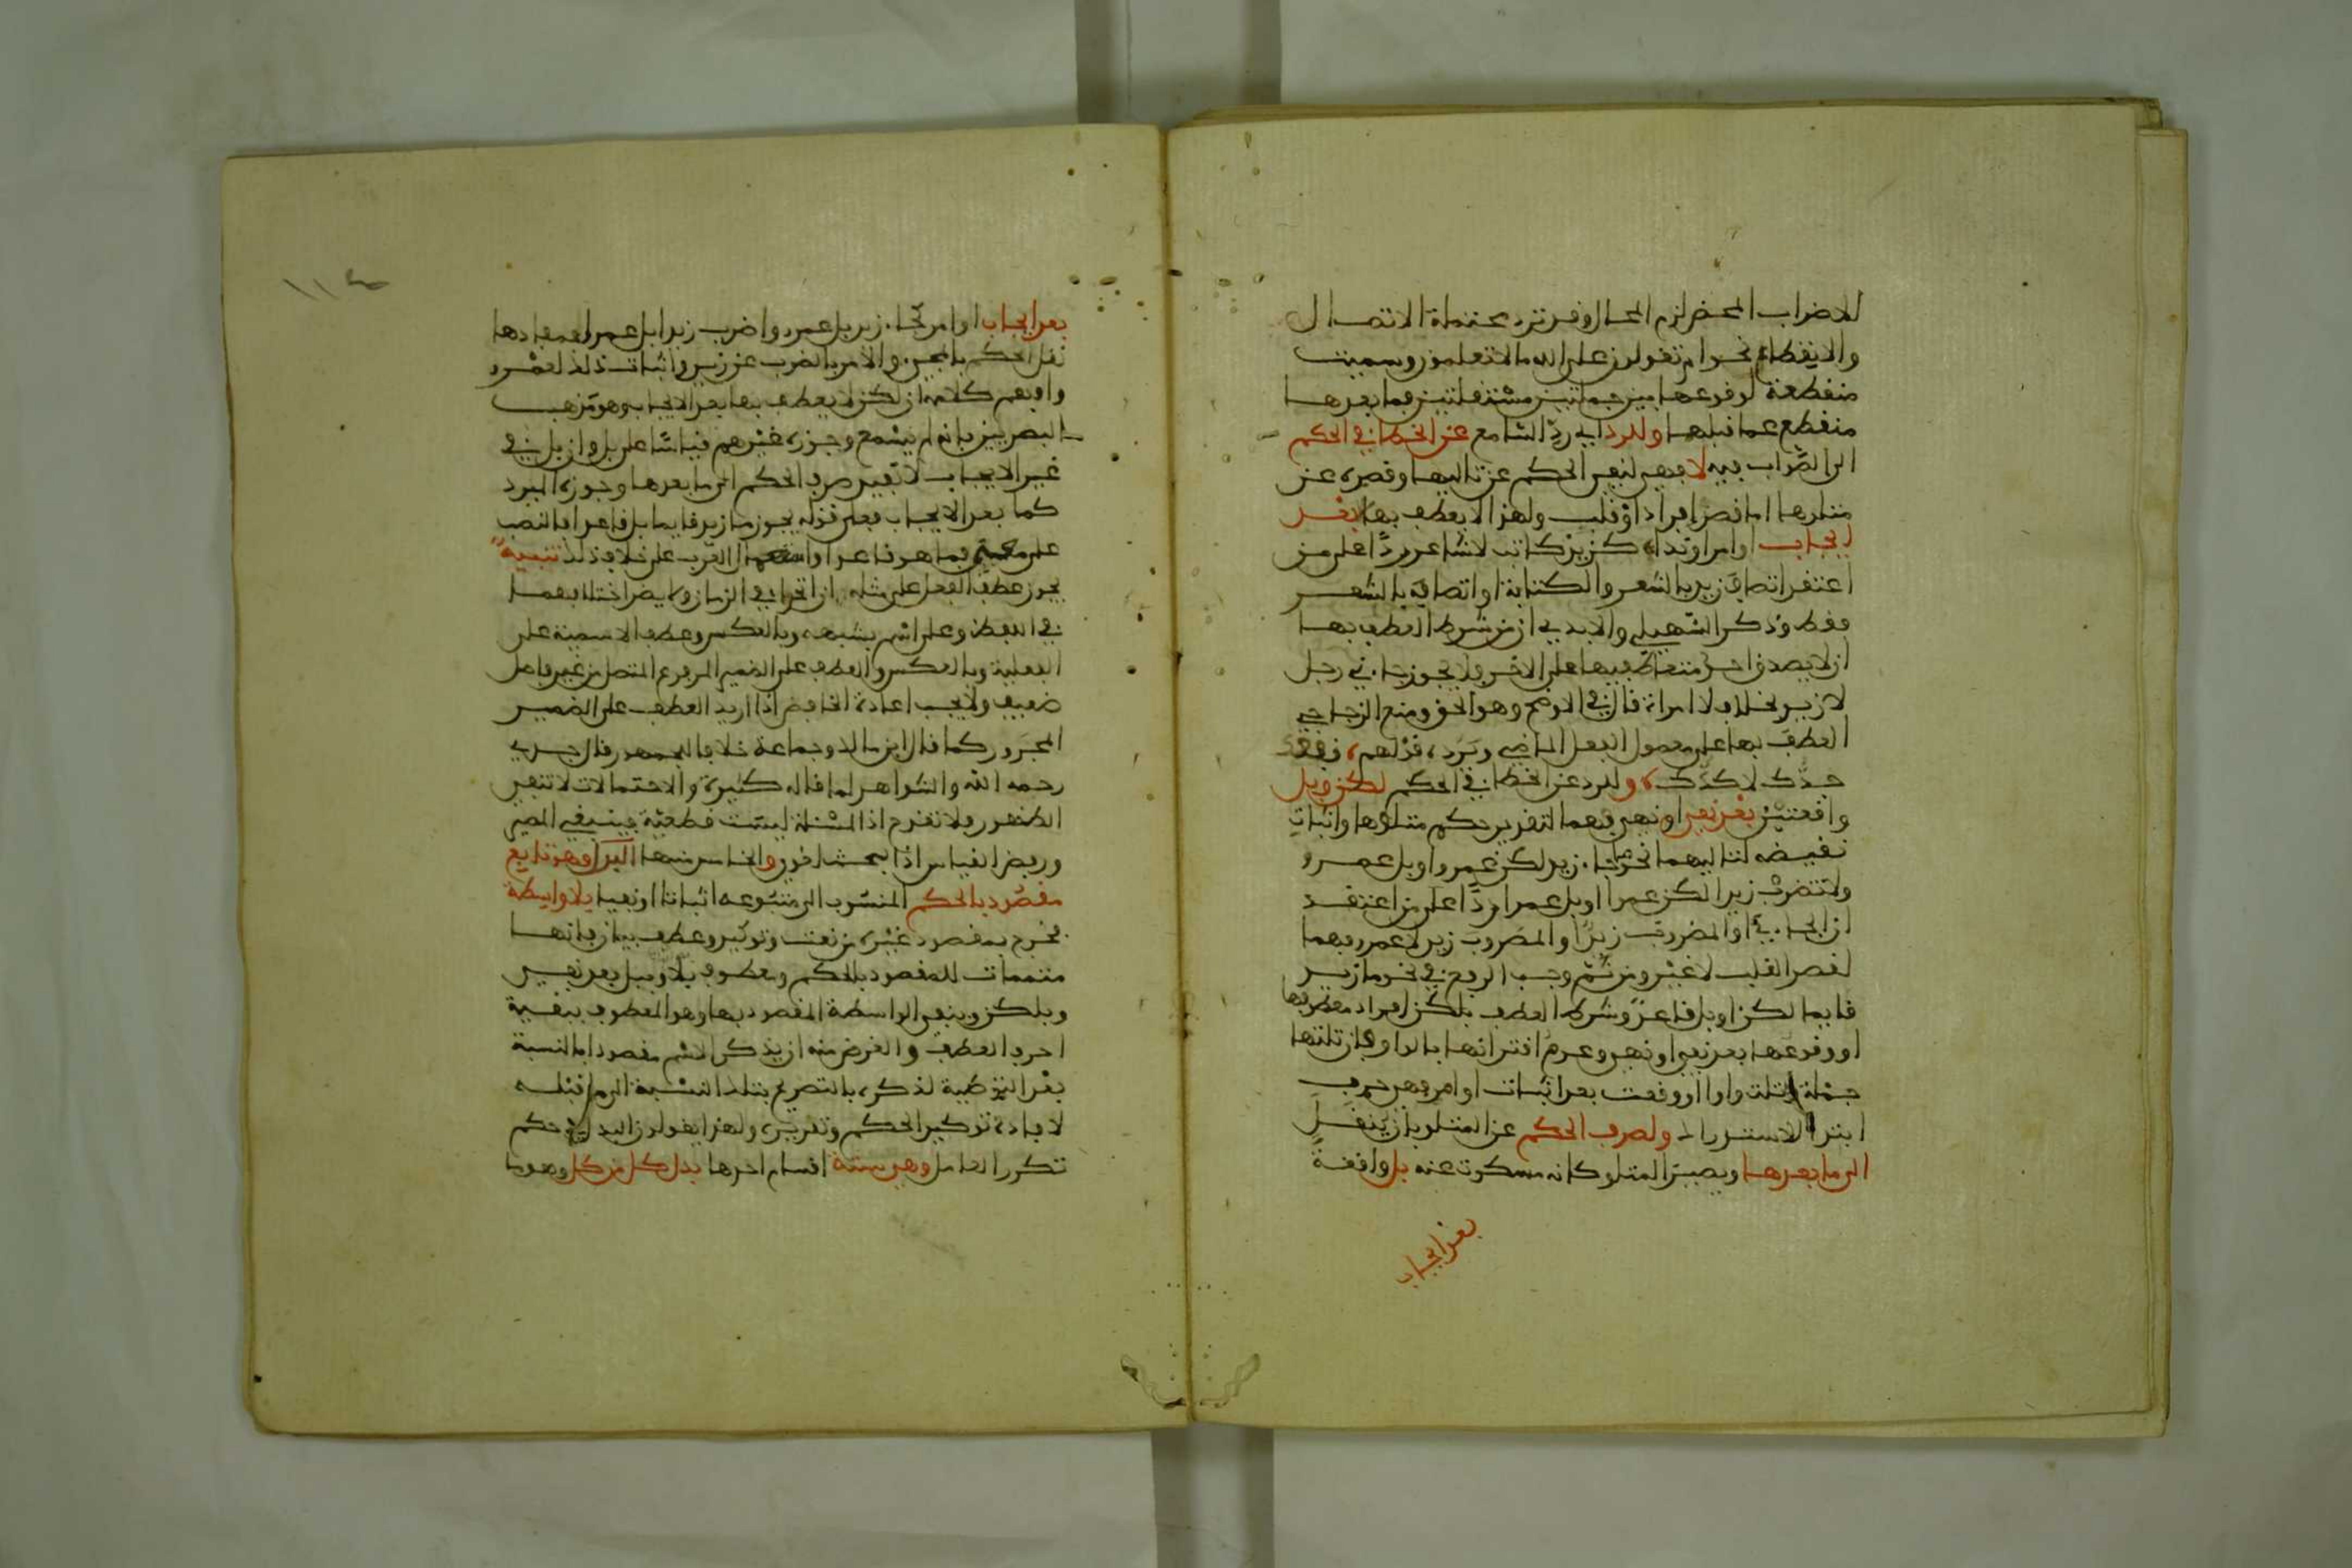 للاضراب المحض لزم المحال وقد ترد محتملة الاتصال
والانقطاع نحو ام تقولون على الله ما لا تعلمون وسميت
منقطعة لوقوعها بين جملتين مستقلتين فما بعدها
منقطع عما قبلها وللرد اي رد السامع عن الخطا في الحكم
الى الصواب فيه لا فهي لنفي الحكم عن تاليها وقصره على
متلوها اما قصر افراد او قلب ولهذا لا يعطف بها بعد
ايجاب او امر او نداء كزيد كاتب لا شاعر ردا على من
اعتقد اتصاف زيد بالشعر والكتابة او اتصافه بالشعر
فقط وذكر السهيلي والابدي ان من شرط العطف بها
ان لا يصدق احد متعاطفيها على الاخر فلا يجوز جاءني رجل
لا زيد بخلاف لا امراة قال في الاوضح وهو الحق ومنع الزجاجي
العطف بها على معمول الفعل الماضي ويرده قولهم نفعك
جدك لا كدك وللرد عن الخطا في الحكم لكن وبل
واقعتين بعد نفي او نهي فهما لتقرير حكم متلوها واثبات
نقيضه لتاليهما نحو ما جاء زيد لكن عمرو او بل عمرو
ولا تضرب زيدا لكن عمرا او بل عمرا ردا على من اعتقد
ان الجاءي او المضروب زيدا والمضروب زيد لا عمرو فهما
لقصر القلب لا غير ومن ثم وجب الرفع في نحو ما زيد
قايما لكن او بل قاعد وشرط العطف بلكن افراد معطوفها
او وقوعها بعد نفي او نهي وعدم اقترانها بالواو فان تلتها
جملة او تلت واوا او وقعت بعد اثبات او امر فهي حرف
ابتدا لاستدراك ولصرف الحكم عن المتلو بان ينقل
الى ما بعدها ويصير المتلو كانه مسكوت عنه بل واقعة
بعد ايجاب
بعد ايجاب او امر كجاء زيد بل عمرو واضرب زيدا بل عمرا فمفادها
نقل الحكم بالمجيء والامر بالضرب عن زيد واثبات ذلك لعمرو
وافهم كلامه ان لكن لا يعطف بها بعد الايجاب وهو مذهب
البصريين بانه لم يسمع وجوزه غيرهم قياسا على بل وان بل في
غير الايجاب لا تفيد صرف الحكم الى ما بعدها وجوزه المبرد
كما بعد الايجاب فعلى قوله يجوز ما زيد قايما بل قاعدا بالنصب
على معنى بل ما هو قاعدا واستعمال العرب على خلاف ذلك تنبيه
يجوز عطف الفعل على مثله ان اتحدا في الزمان ولا يضر اختلافهما
في اللفظ وعلى اسم يشبهه وبالعكس وعطف الاسمية على
الفعلية وبالعكس والعطف على الضمير المرفوع المتصل من غير فاصل
ضعيف ولا يجب اعادة الخافض اذا اريد العطف على الضمير
المجرور كما قال ابن مالك وجماعة خلافا للجمهور قال جدي
رحمه الله والشواهد لما قاله كثيرة والاحتمالات لا تنفي
الظهور ولا تقدح اذ المسئلة ليست قطعية فينبغي المصير
ورفض القياس اذا بحث اخرى والخامس منها البدل وهو تابع
مقصود بالحكم المنسوب الى متبوعه اثباتا او نفيا بلا واسطة
فخرج بمقصود غيره من نعت وتوكيد وعطف بيان فانها
متممات للمقصود بالحكم ومعطوف بلا وببل بعد نفي
وبلكن وبنفي الواسطة المقصود بها وهو المعطوف ببقية
احرف العطف والغرض منه ان يذكر الاسم مقصودا بالنسبة
بعد التوطية لذكره بالتصريح بتلك النسبة الى ما قبله
لافادة توكيد الحكم وتقريره ولهذا يقولون البدل في حكم
تكرر العامل وهي ستة اقسام احدها بدل كل من كل وهو ما